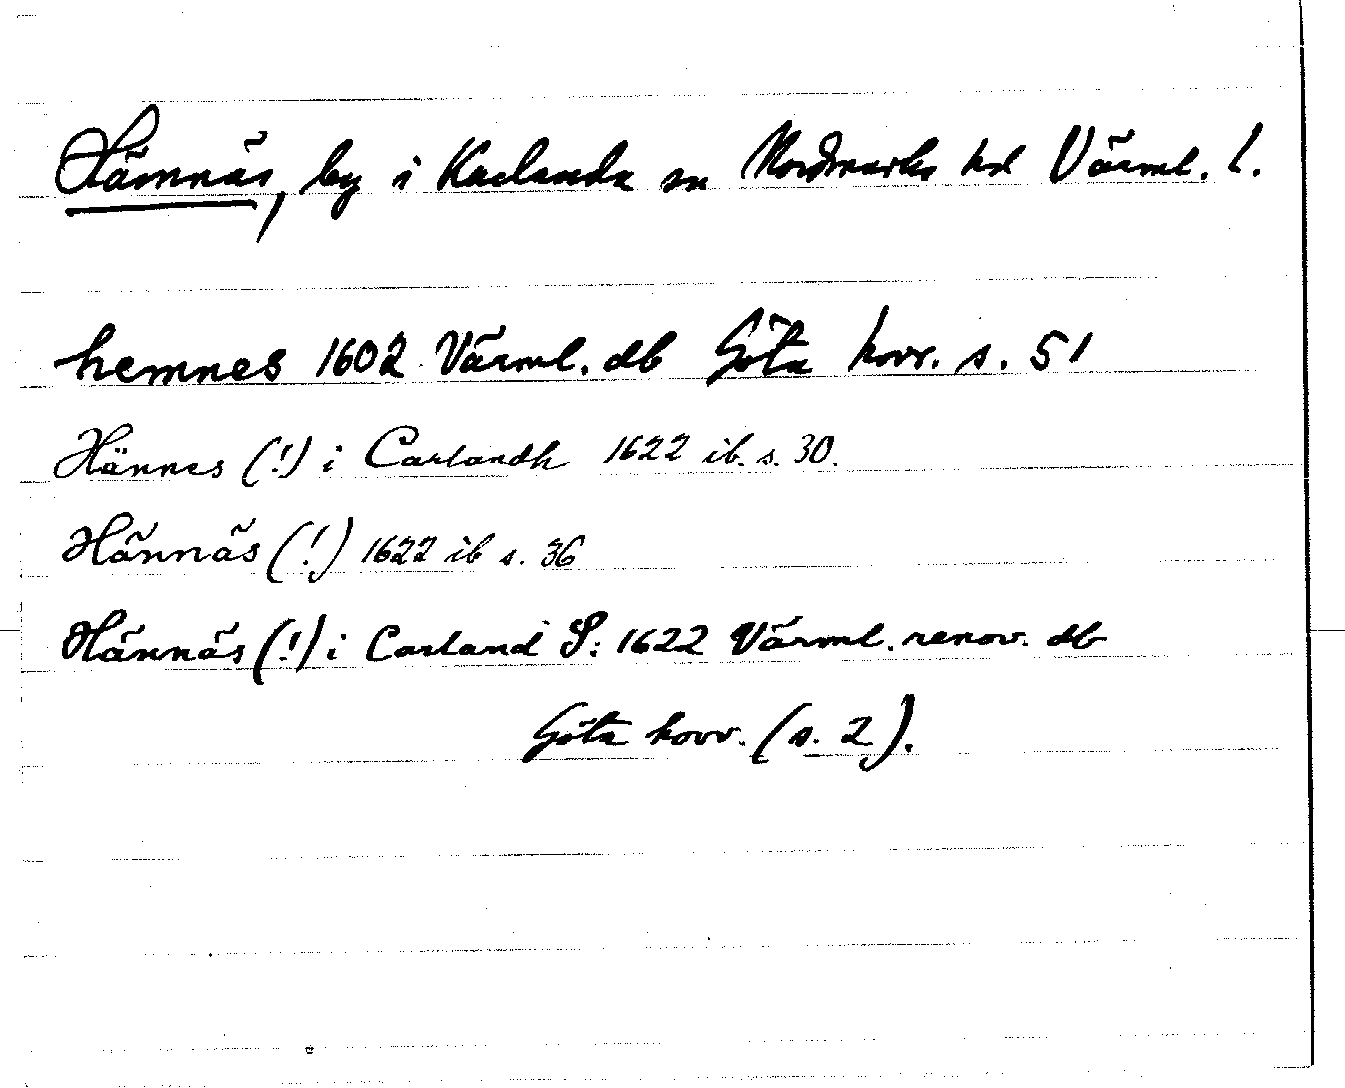 Hämnäs, by i Karlanda sn Nordmarks hd Värml. l.
hemnes 1602 Värml. db Göta hovr. s. 51
Hännes (!) i Carlandh 1622 ib. s. 30.
Hännäs (!) 1622 ib s. 36
Hännäs (!) i Carland S: 1622 Värml. renov. db
Göta hovr. (s. 2).